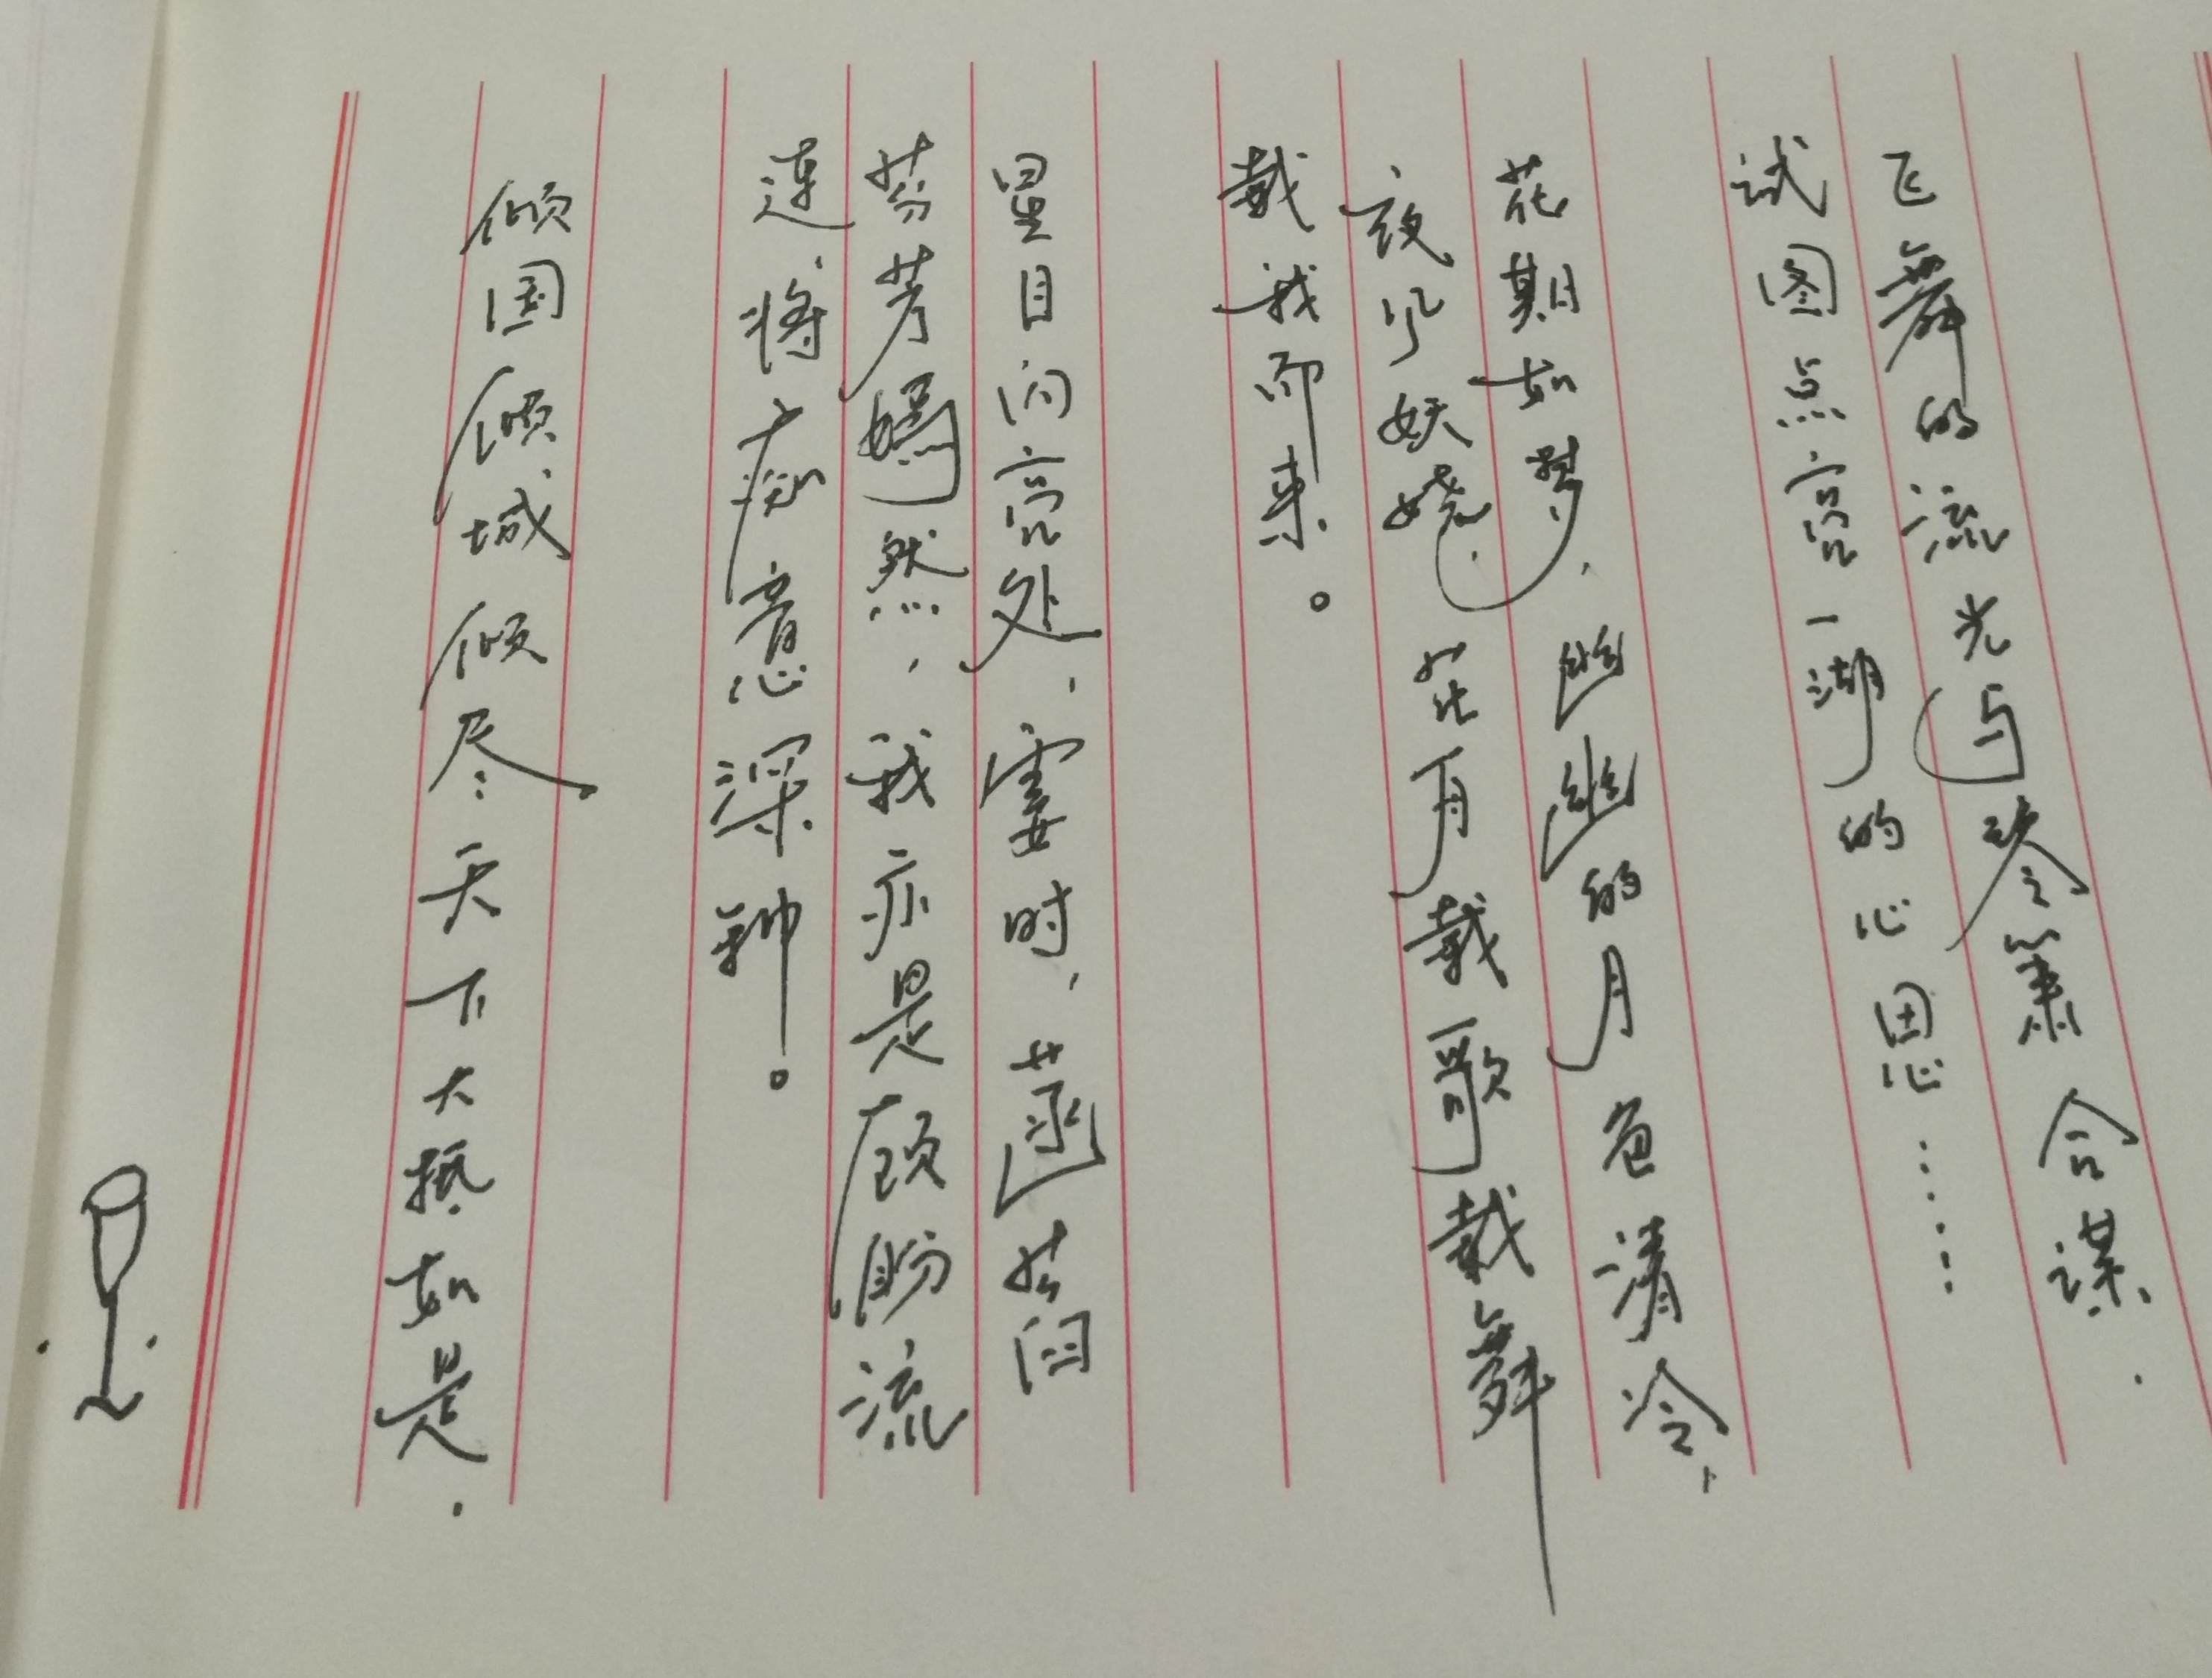 飞舞的流光与琴箫合谋.
试图点亮一湖的心思……
花期如梦,幽幽的月色清冷,
夜风妖娆.花月载歌载舞
载我而来。
星目闪亮处,霎时,菡萏
芬芳嫣然,我亦是顾盼流
连,将痴意深种。
倾国倾城倾尽天下大抵如是.